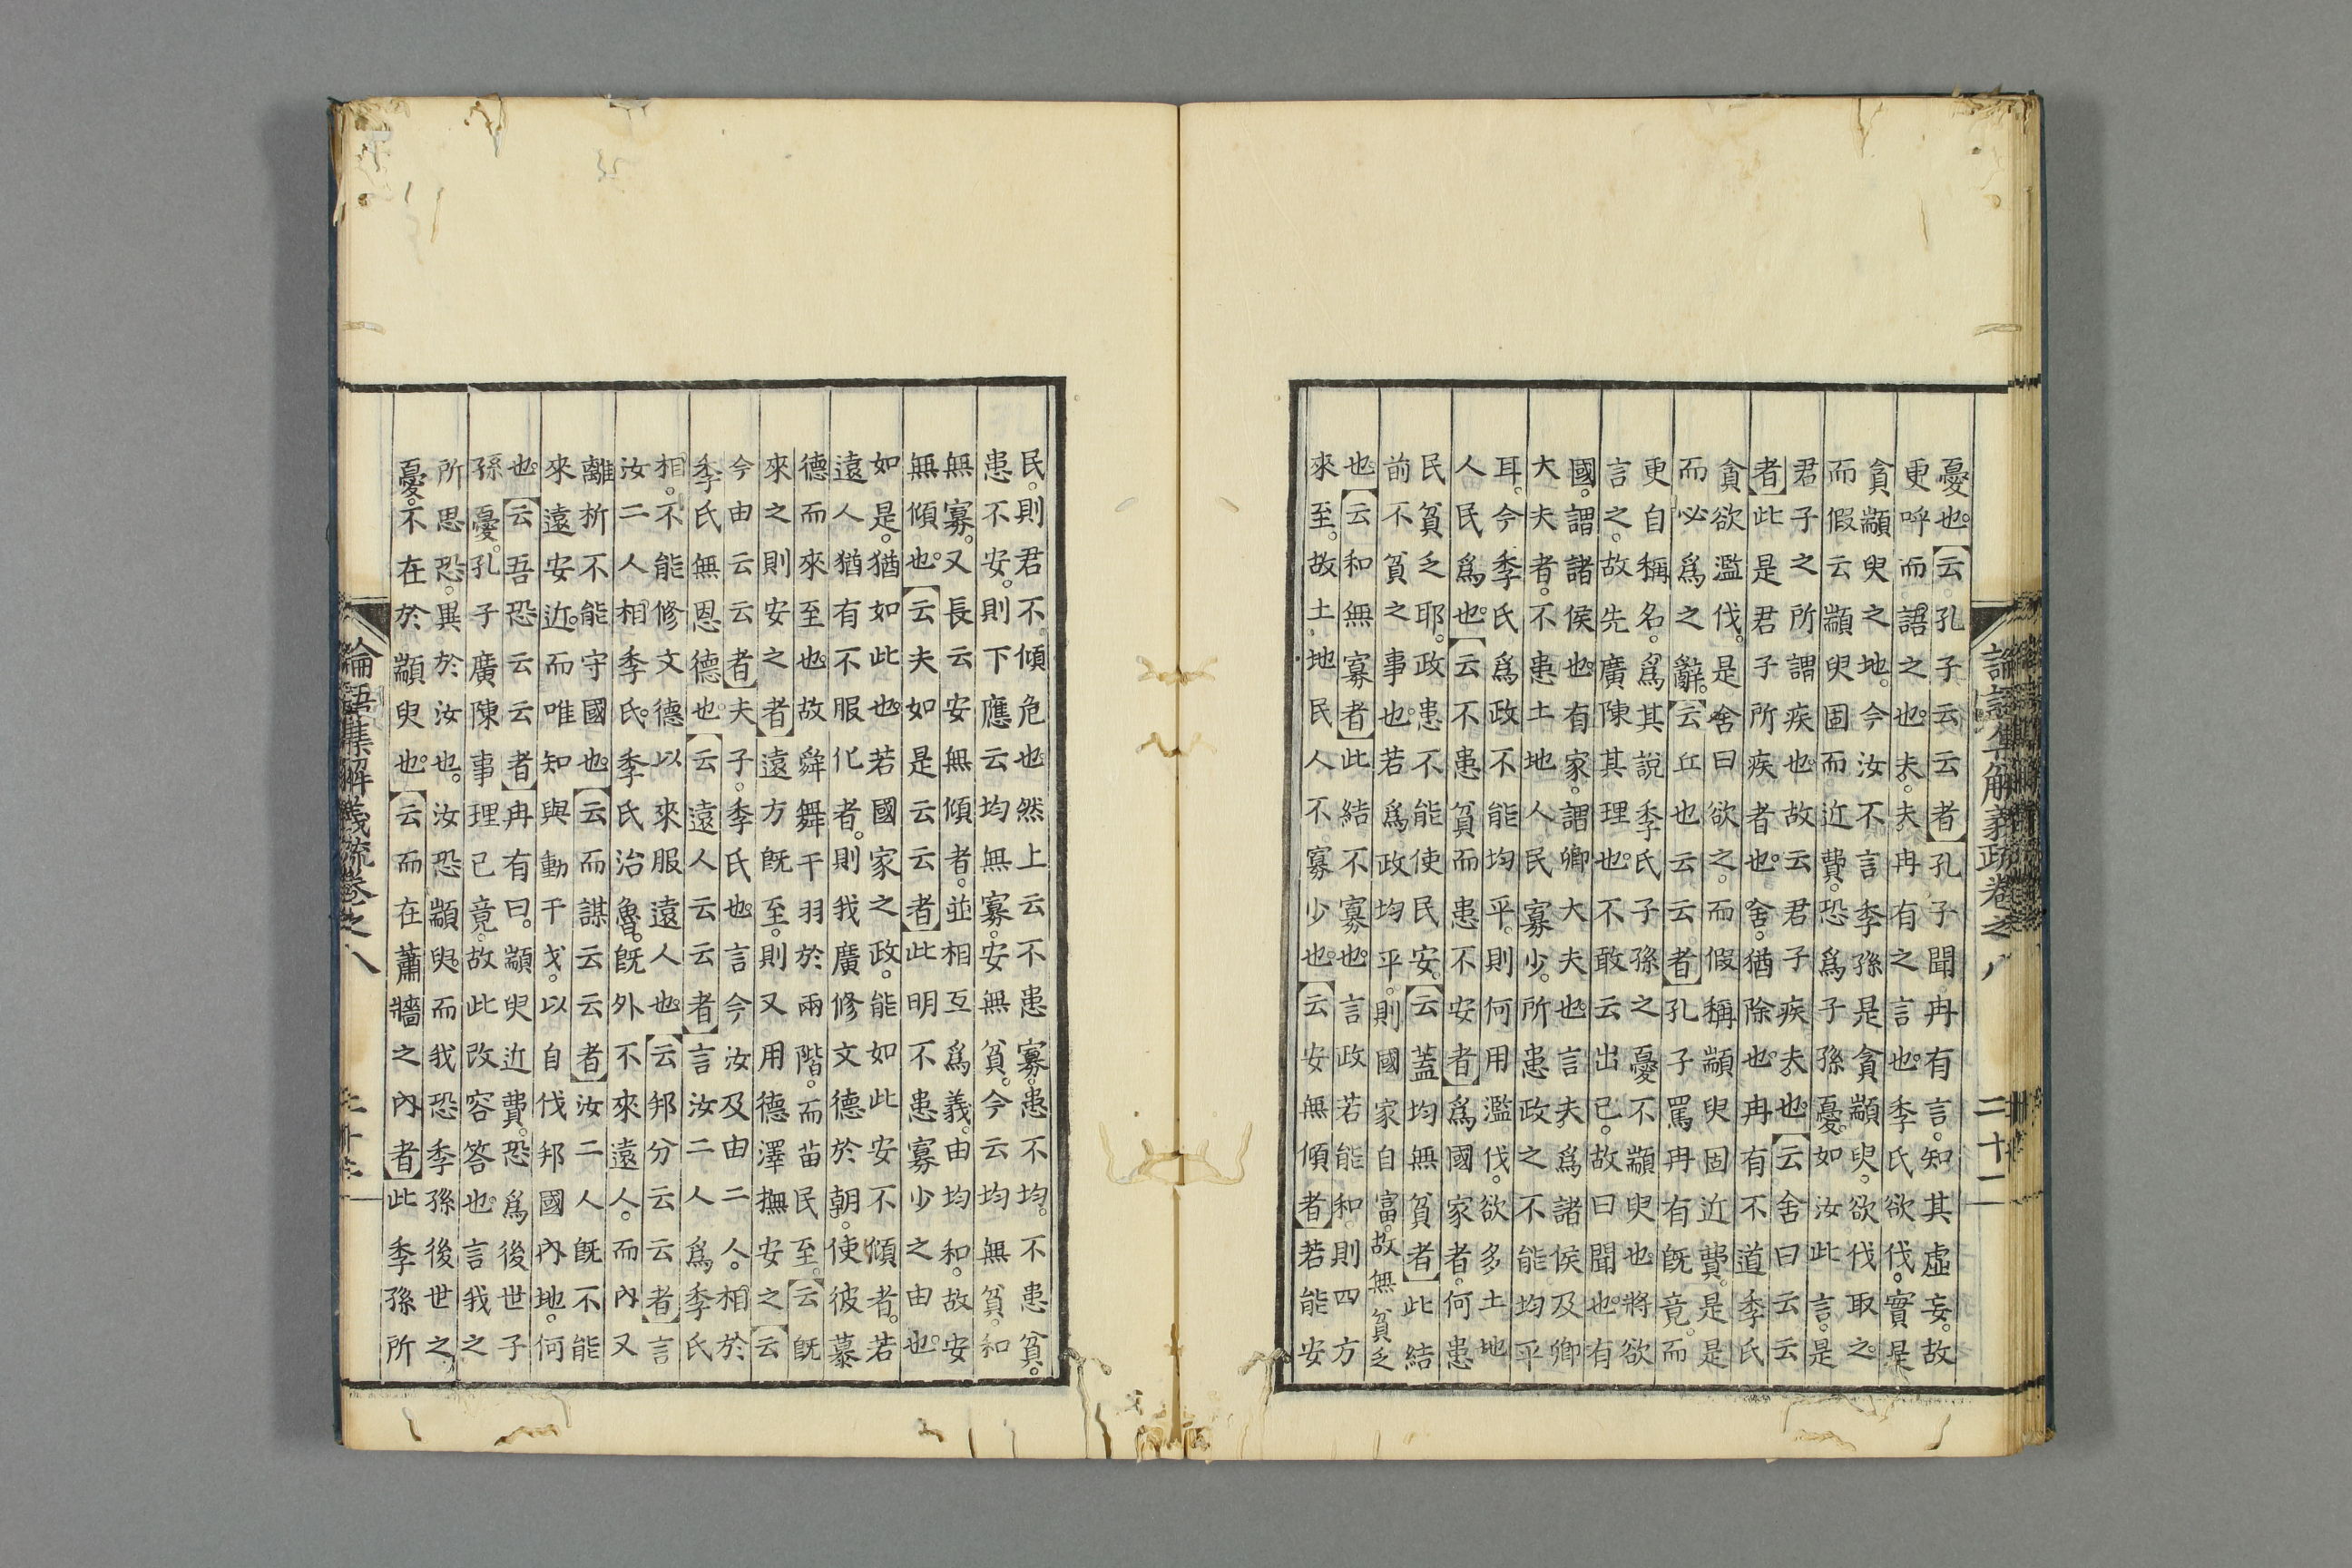 論語集解義疏卷之八　二十二
憂也。【云孔子云云者】孔子聞冉有言。知其虛妄。故
更呼而語之也。夫。夫冉有之言也。季氏欲伐。實是
貪顓臾之地。今汝不言季孫是貪顓臾。欲伐取之。
而假云顓臾固而近費。恐爲子孫憂。如汝此言。是
君子之所謂疾也。故云君子疾夫也。【云舍曰云云
者】此是君子所疾者也。舍。猶除也。冉有不道季氏
貪欲濫伐。是舍曰欲之。而假稱顓臾固近費。是是
而必爲之辭。【云丘也云云者】孔子罵冉有旣竟。而
更自稱名。爲其說季氏子孫之憂不顓臾也將欲
言之。故先廣陳其理也。不敢云出己。故曰聞也。有
國。謂諸侯也。有家。謂卿大夫也。言夫爲諸侯及卿
大夫者。不患土地人民寡少。所患政之不能均平
耳。今季氏爲政不能均平。則何用濫伐。欲多土地
人民爲也。【云不患貧而患不安者】爲國家者。何患
民貧乏耶。政患不能使民安。【云蓋均無貧者】此結
前不貧之事也。若爲政均平。則國家自富。故無貧乏
也。【云和無寡者】此結不寡也。言政若能和。則四方
來至。故土地民人不寡少也。【云安無傾者】若能安
民。則君不傾危也然上云不患寡。患不均。不患貧。
患不安。則下應云均無寡。安無貧。今云均無貧。和
無寡。又長云安無傾者。並相互爲義。由均和。故安
無傾也。【云夫如是云云者】此明不患寡少之由也。
如。是。猶如此也。若國家之政。能如此安不傾者。若
遠人猶有不服化者。則我廣修文德於朝。使彼慕
德而來至也。故舜舞干羽於兩階。而苗民至。【云旣
來之則安之者】遠方旣至。則又用德澤撫安之【云
今由云云者】夫子。季氏也。言今汝及由二人。相於
季氏無恩德也。【云遠人云云者】言汝二人爲季氏
相。不能修文德以來服遠人也。【云邦分云云者】言
汝二人相季氏。季氏治魯。旣外不來遠人。而內又
離析不能守國也。【云而謀云云者】汝二人旣不能
來遠安近。而唯知與動干戈。以自伐邦國內地。何
也。【云吾恐云云者】冉有曰。顓臾近費。恐爲後世子
孫憂。孔子廣陳事理已竟。故此改容答也。言我之
所思恐。異於汝也。汝恐顓臾。而我恐季孫後世之
憂。不在於顓臾也。【云而在蕭牆之內者】此季孫所
論語集解義疏卷之八